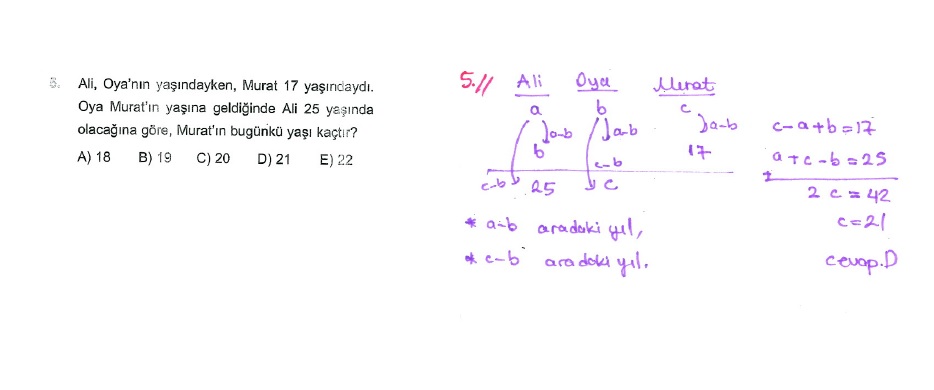 5. Ali, Oya'nın yaşındayken, Murat 17 yaşındaydı.
Oya Murat'ın yaşına geldiğinde Ali 25 yaşında
olacağına göre, Murat'ın bugünkü yaşı kaçtır?
A) 18 B) 19 C) 20 D) 21 E) 22
5.// Ali Oya Murat
a b c
a-b a-b a-b
b c-b 17
c-b 25 c
* a-b aradaki yıl,
* c-b aradaki yıl.
c-a+b=17
a+c-b=25
+
2c=42
c=21
cevap.D